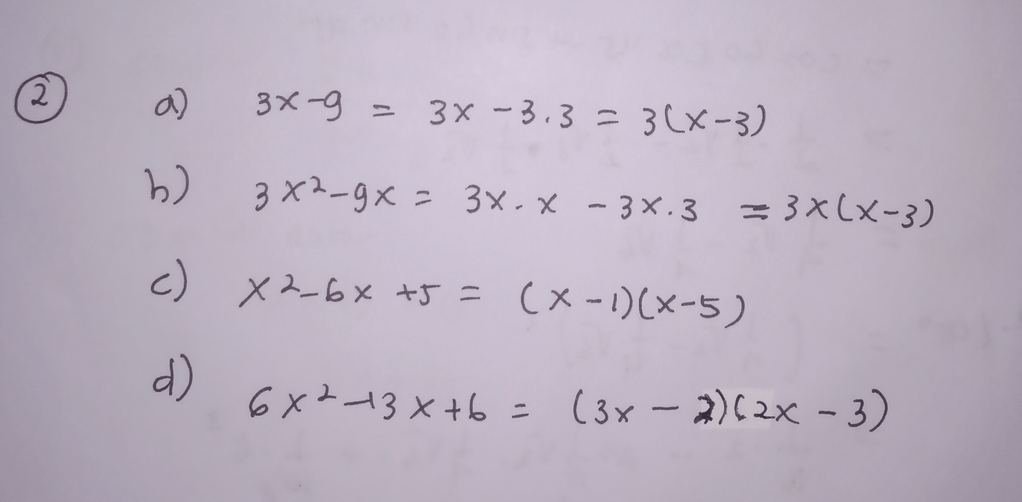 ② a) 3x-9 = 3x - 3.3 = 3(x-3)
b) 3x²-9x = 3x.x - 3x.3 = 3x(x-3)
c) x²-6x+5 = (x-1)(x-5)
d) 6x²-13x+6 = (3x - 2)(2x - 3)